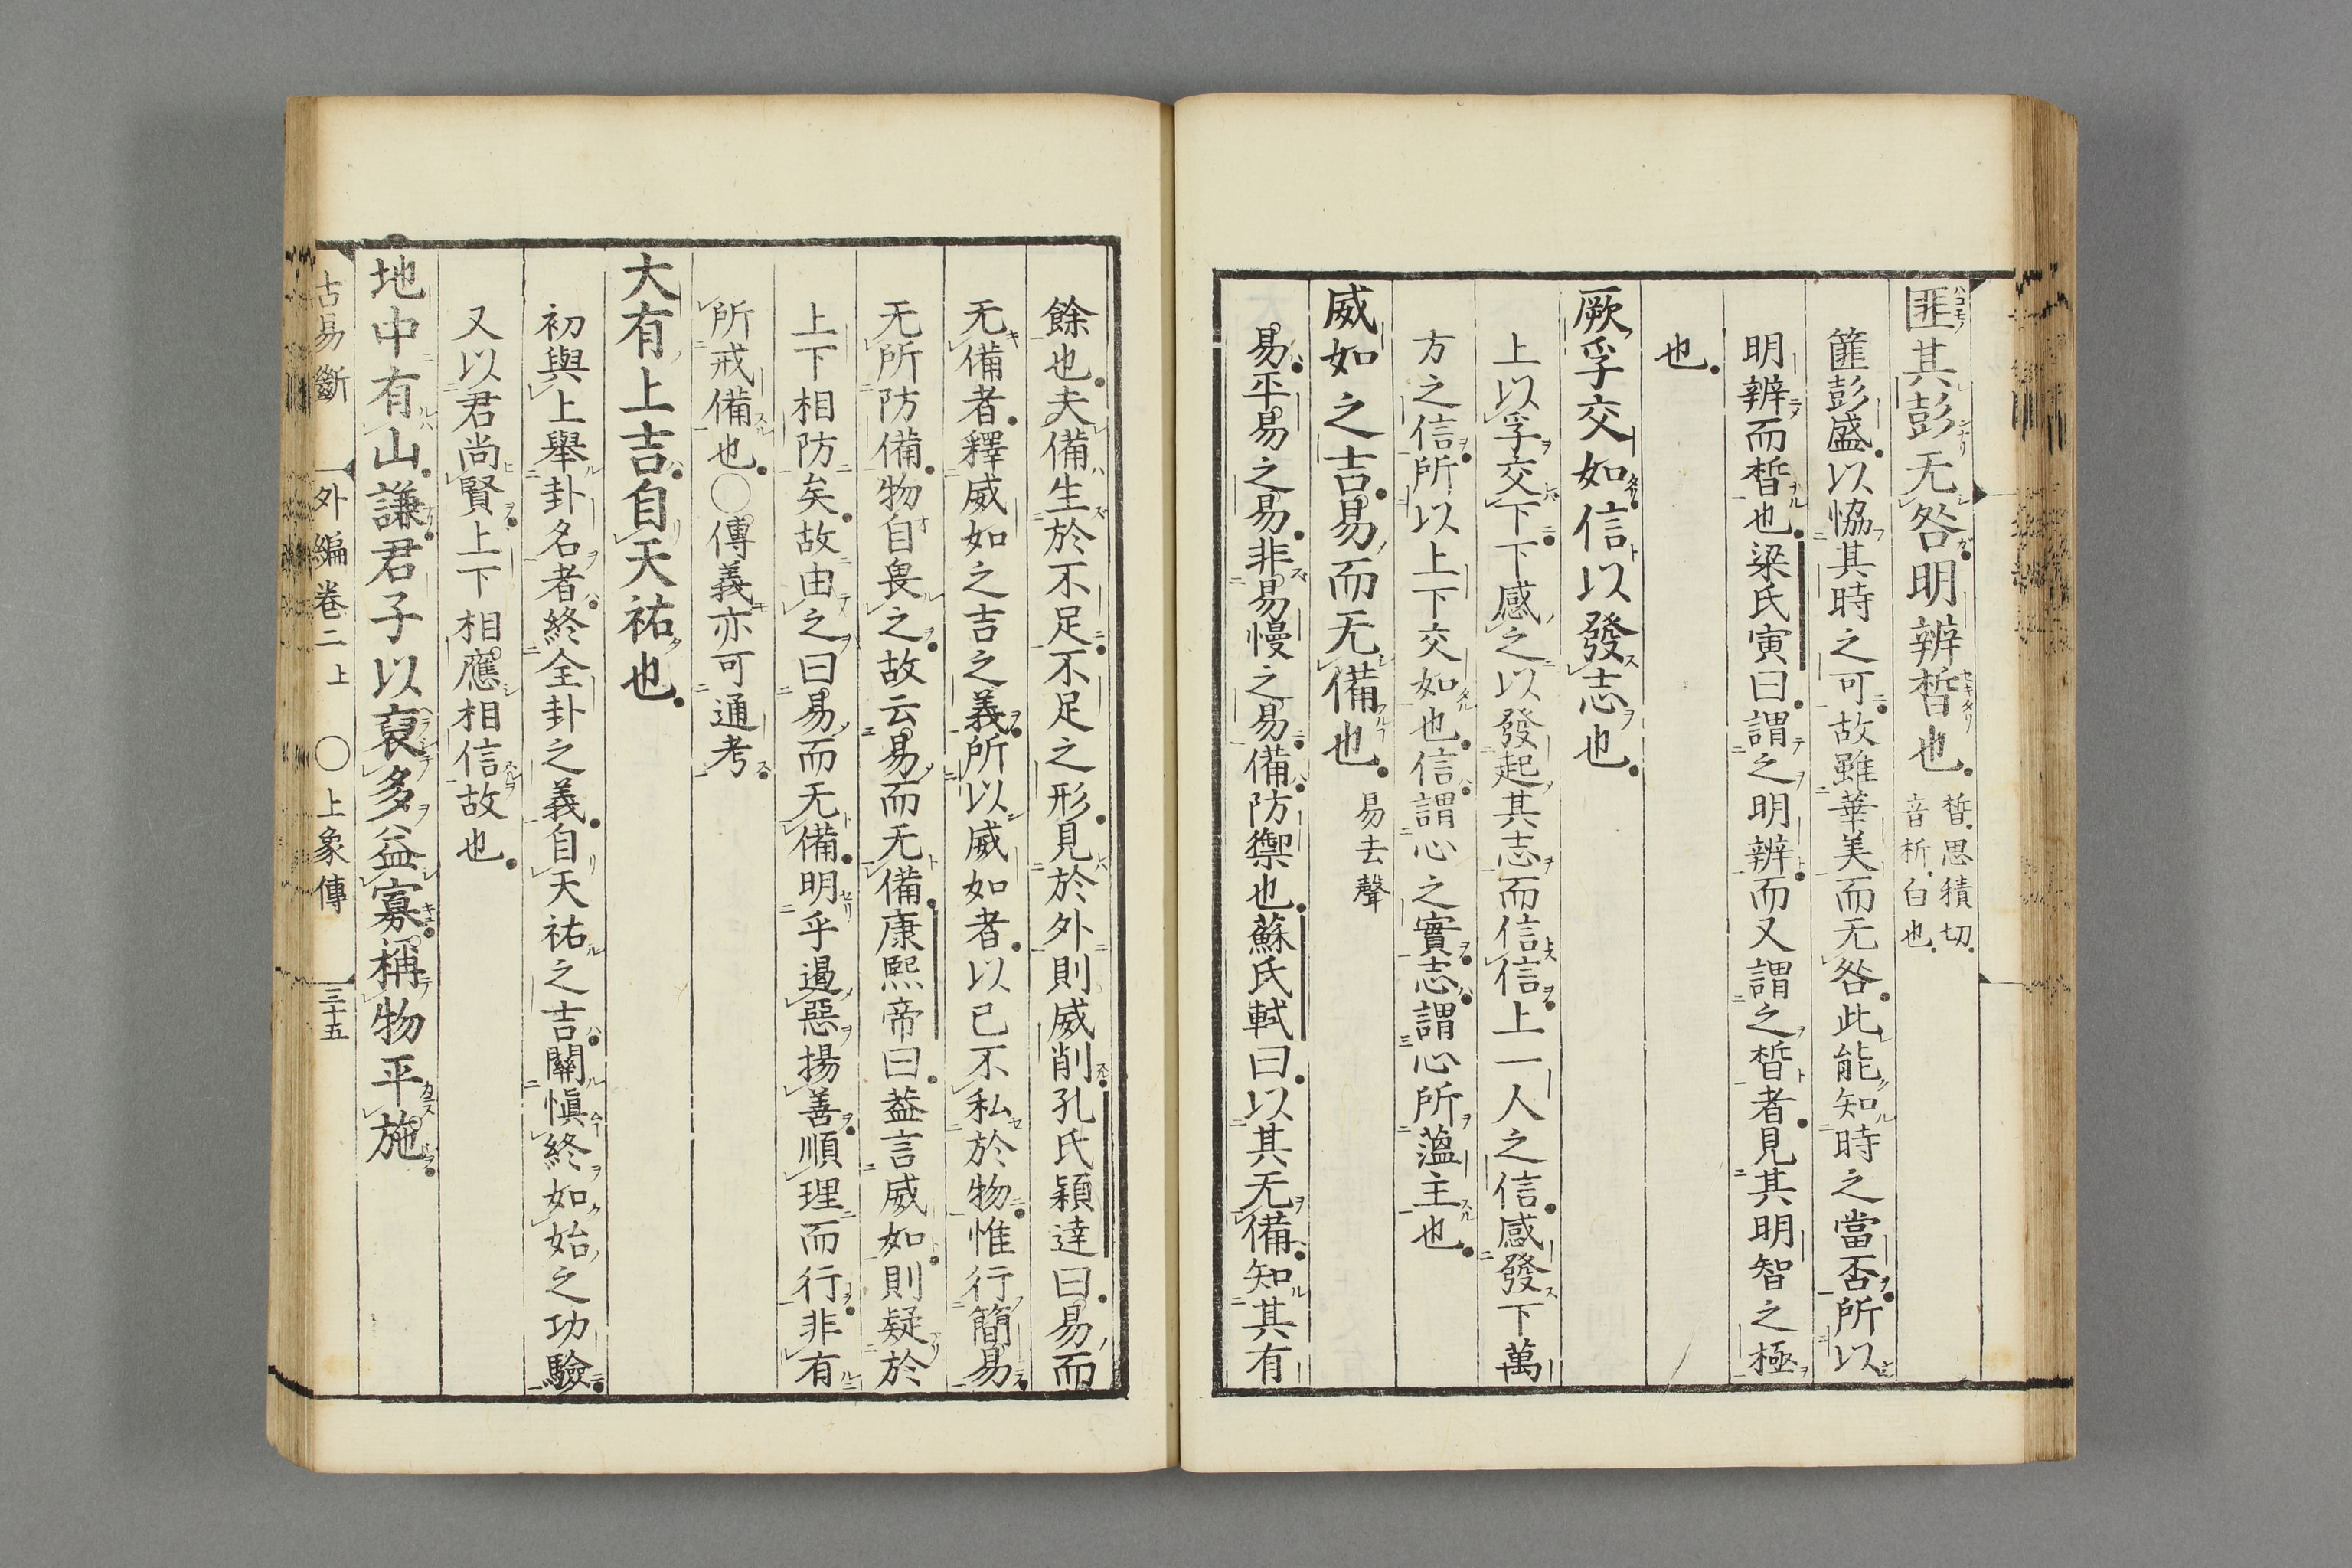 匪其彭无咎明辨晳也 晳思積切音析白也
篚彭盛以恊其時之可故雖華美而无咎此能知時之當否所以
明辨而晳也梁氏寅曰謂之明辨而又謂之晳者見其明智之極
也
厥孚交如信以發志也
上以孚交下下感之以發起其志而信信上一人之信感發下萬
方之信所以上下交如也信謂心之實志謂心所薀主也
威如之吉易而无備也 易去聲
易平易之易非易慢之易備防禦也蘇氏軾曰以其无備知其有
餘也夫備生於不足不足之形見於外則威削孔氏穎達曰易而
无備者釋威如之吉之義所以威如者以已不私於物惟行簡易
无所防備物自畏之故云易而无備康熙帝曰葢言威如則疑於
上下相防矣故由之曰易而无備明乎遏惡揚善順理而行非有
所戒備也○傳義亦可通考
大有上吉自天祐也
初與上舉卦名者終全卦之義自天祐之吉關愼終如始之功驗
又以君尚賢上下相應相信故也
地中有山謙君子以裒多益寡稱物平施
古易斷 外編卷二上 ○上象傳 三十五